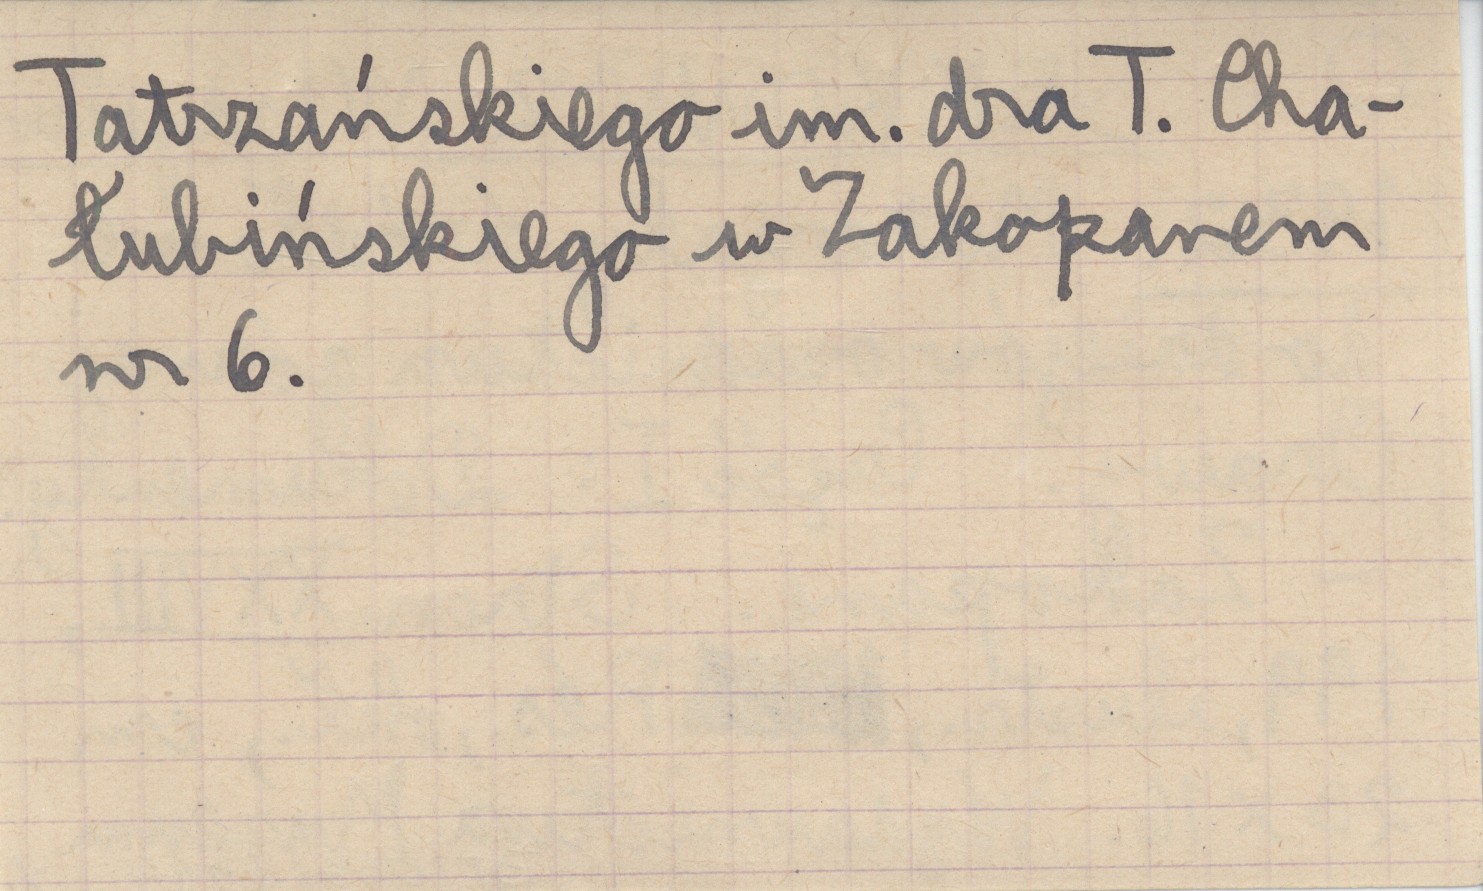 Tatrzańskiego im. dra T. Cha-
łubińskiego w Zakopanem
nr 6.